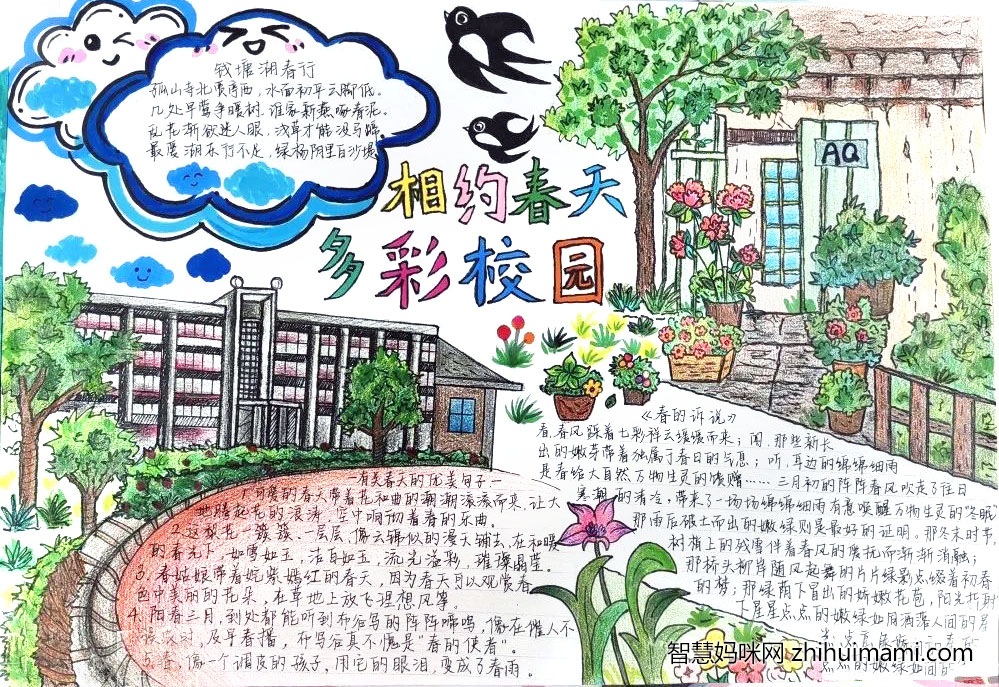 钱塘湖春行
孤山寺北贾亭西,水面初平云脚低。
几处早莺争暖树,谁家新燕啄春泥。
乱花渐欲迷人眼,浅草才能没马蹄。
最爱湖东行不足,绿杨阴里白沙堤
相约春天
多彩校园
AQ
《春的诉说》
看,春风踩着七彩祥云缓缓而来;闻,那些新长
出的嫩芽带着独属于春日的气息;听,耳边的绵绵细雨
是春给大自然万物生灵的馈赠……三月初的阵阵春风吹走了往日
寒潮的清冷,带来了一场场绵绵细雨有意唤醒万物生灵的冬眠
那雨后破土而出的嫩绿则是最好的证明。那冬末时节,
树梢上的残雪伴着春风的 而渐渐消融;
那桥头柳岸随风起舞的片片绿影点缀着初春
的梦;那绿荫下冒出的娇嫩花苞,阳光折射
下星星点点的嫩绿如同洒落人间的星
点点的嫩绿如同
有关春天的优美句子
1.可爱的春天带着花和曲的潮潮滚滚而来,让大
地腾起花的浪涛,空中响彻着春的乐曲。
2.这梨花一簇簇,一层层,像云锦似的漫天铺去,在和暖
的春光下,如雪如玉,洁白如玉,流光溢彩,璀璨晶莹。
3.春姑娘带着姹紫嫣红的春天,因为春天可以观赏春
色中美丽的花朵,在草地上放飞理想风筝。
4.阳春三月,到处都能听到布谷鸟的阵阵啼鸣,像在催人不
误农时,及早春播,布谷鸟真不愧是"春的使者"。
5.春,像一个调皮的孩子,用它的眼泪,变成了春雨。
智慧妈咪网 zhihuimami.com